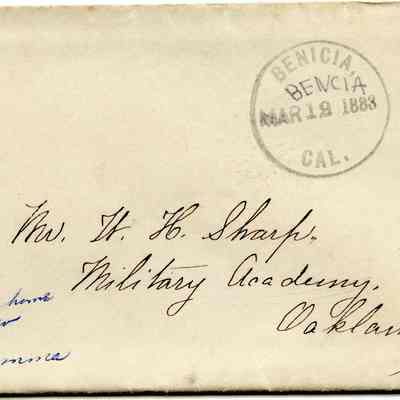 BENICIA,
BENCIA
MAR 19 1883
CAL.
Mr. W. H. Sharp.
Military Academy.
Oaklan
home